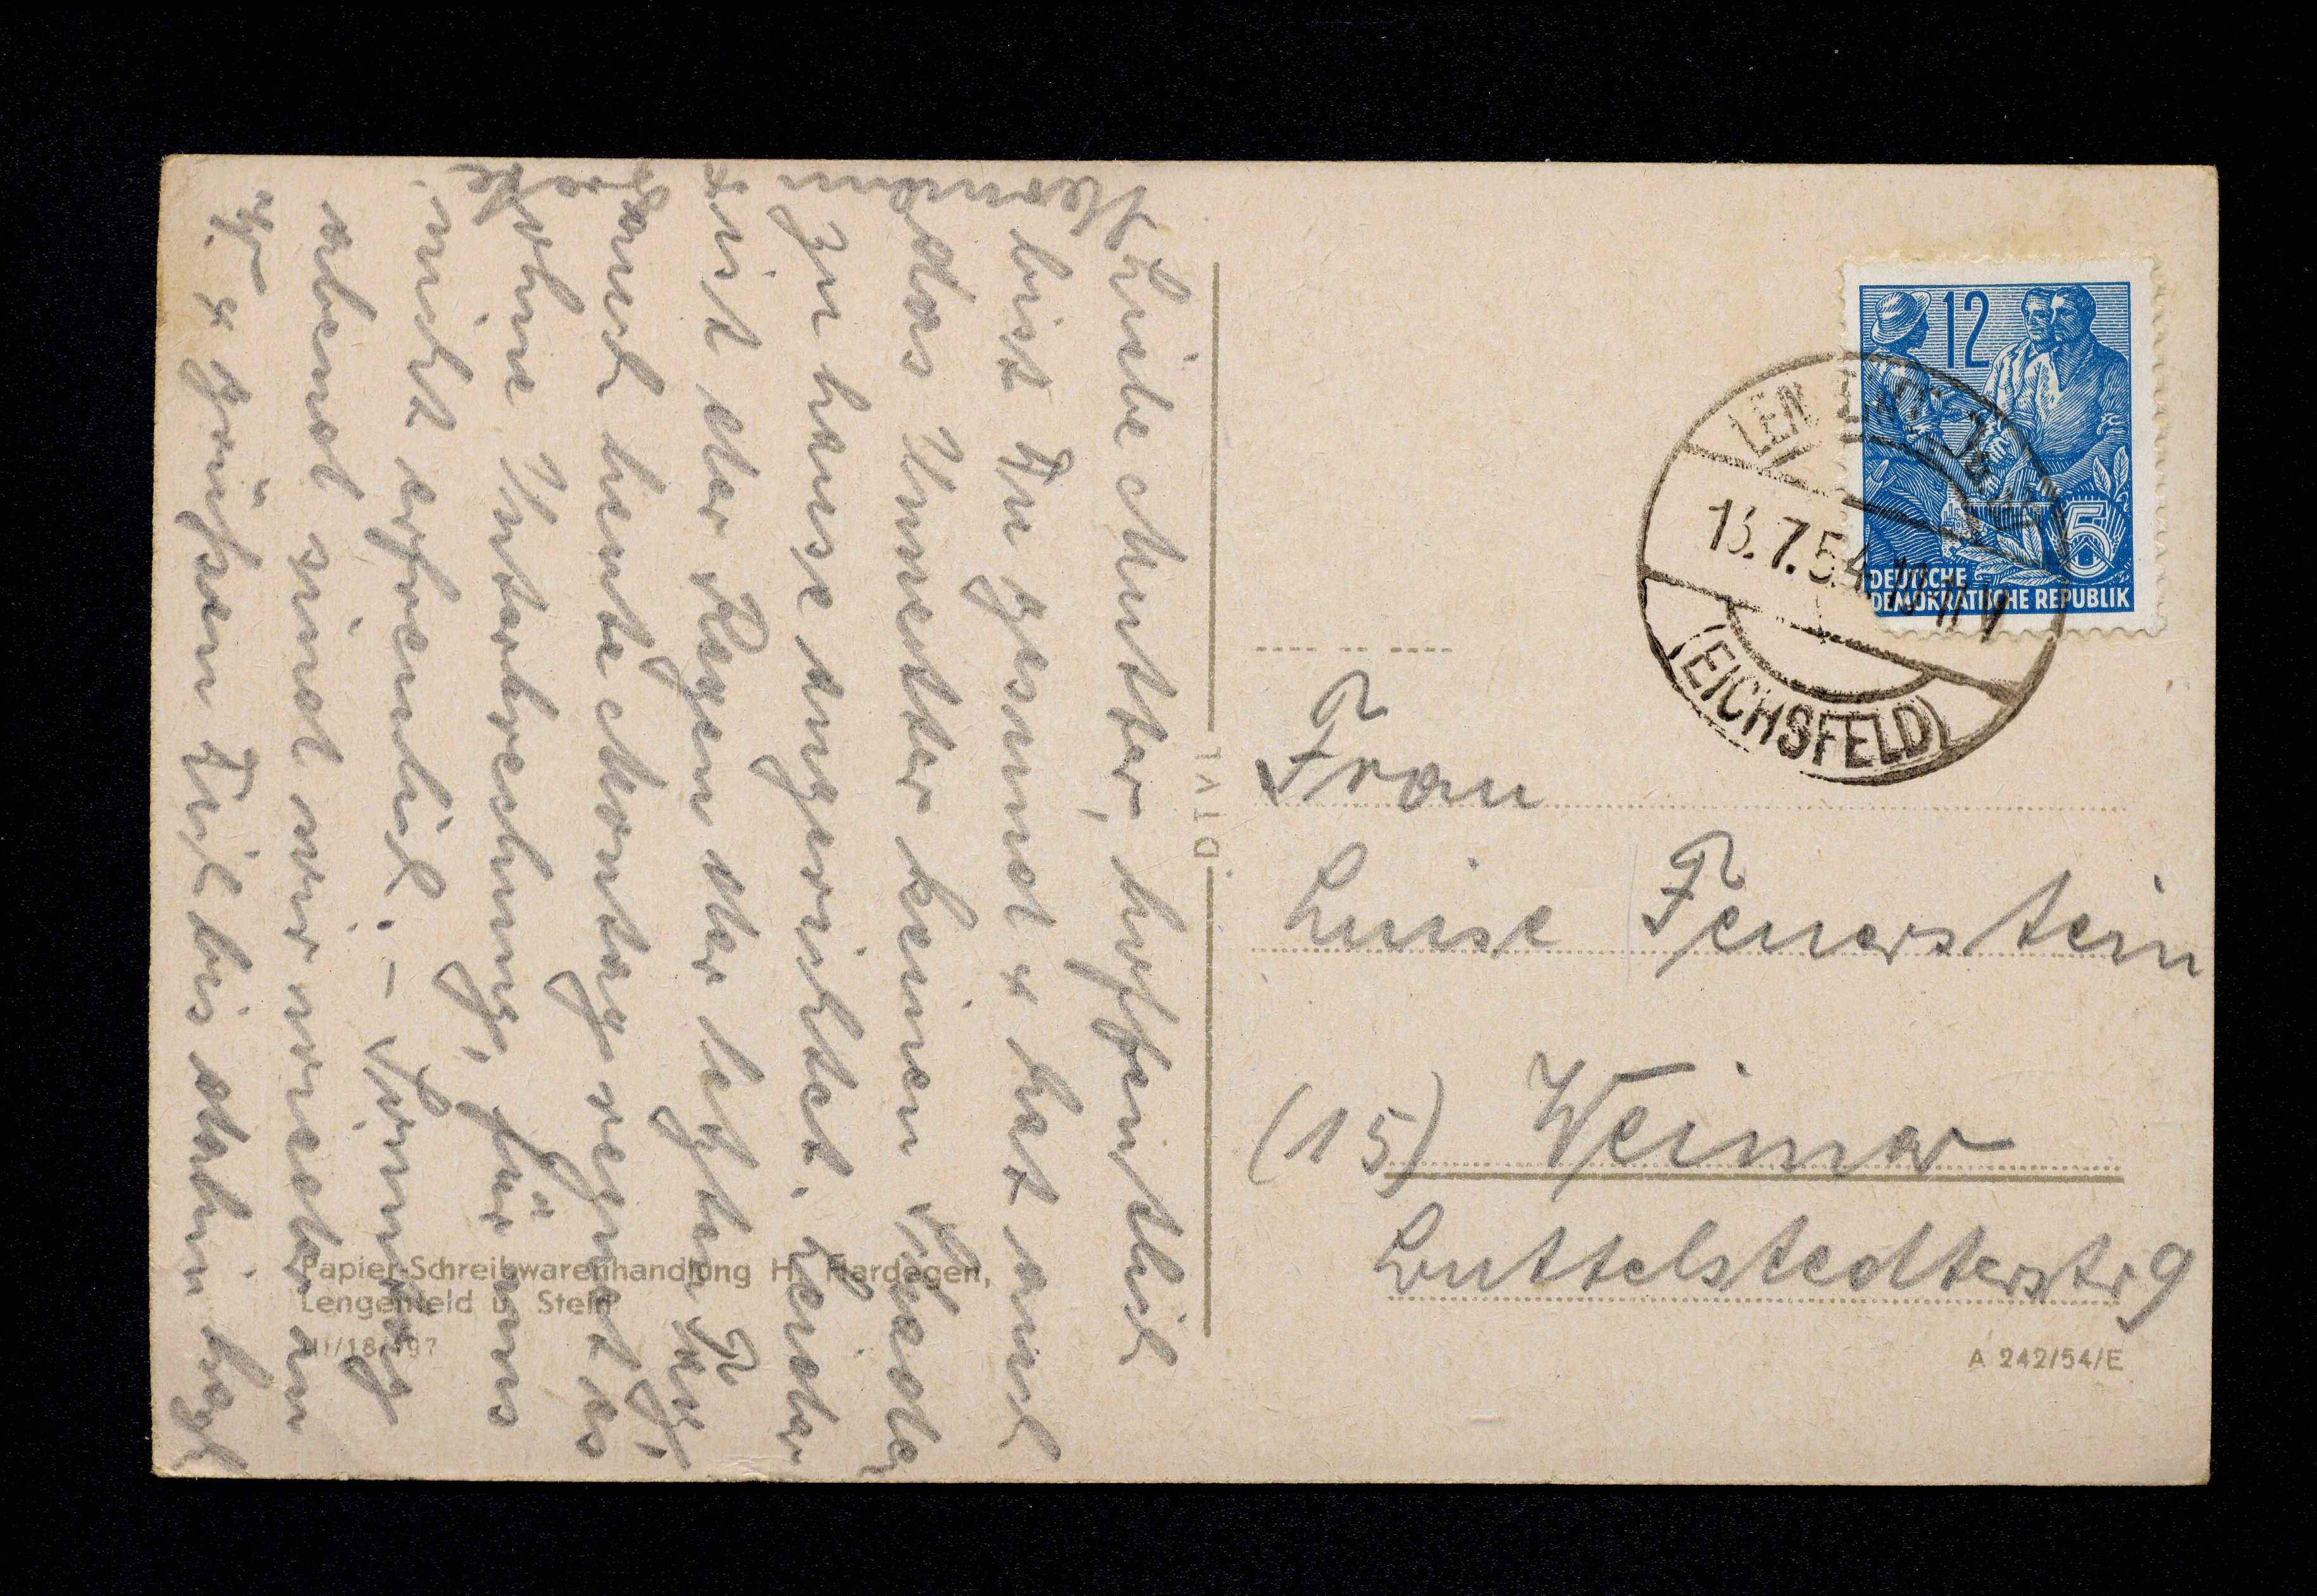 Liebe Mutter, hoffentlich
bist Du gesund u. hat auch
das Unwetter keinen Schaden
zu hause angerichtet. Leider
ist der Regen der letzten Tage
auch heute Montag regnet es
ohne Unterbrechung, für uns
nicht erfreulich. – Sonntag
abend sind wir wieder in
u. grüßen Dich bis dahin herzl
Hermann
u.
Grete
DEUTSCHE
DEMOKRATISCHE REPUBLIK
12
5
13.7.54
(EICHSFELD)
Frau
Luise Feuerstein
(15) Weimar
Buttelstedterstr 9
Papier-Schreibwarenhandlung H. Hardegen,
Lengenfeld u. Stein
III/18/197
A 242/54/E